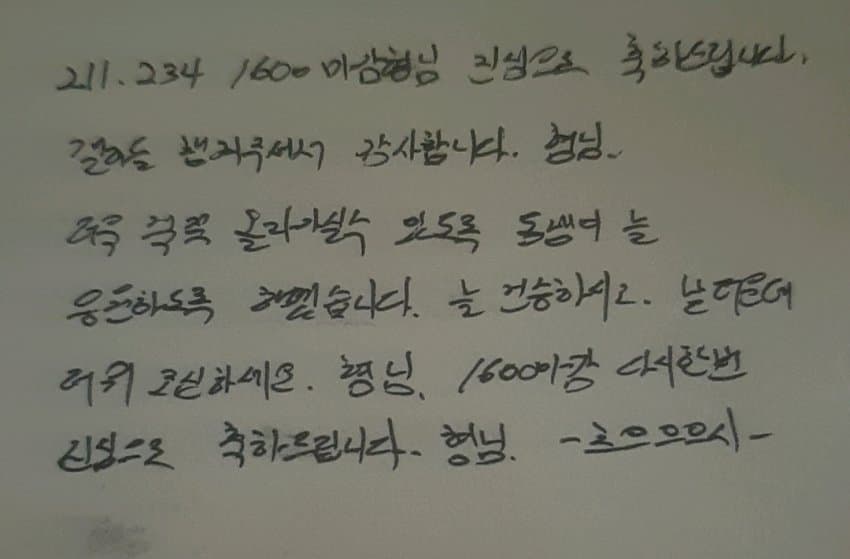 211.234 1600 마감형님 진심으로 축하드립니다.
챙겨주셔서 감사합니다. 형님.
더욱 쭉쭉 올라가실수 있도록 동생이 늘
응원하도록 하겠습니다. 늘 건승하시고. 날 더운데
더위 조심하세요. 형님. 1600마감 다시한번
진심으로 축하드립니다. 형님.